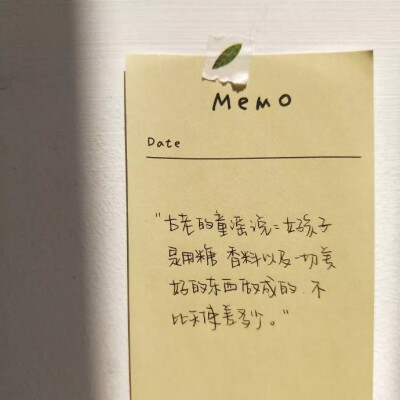 Memo
Date
"古老的童谣说：女孩子
是用糖 香料以及一切美
好的东西做成的.不
比天使差多少。"